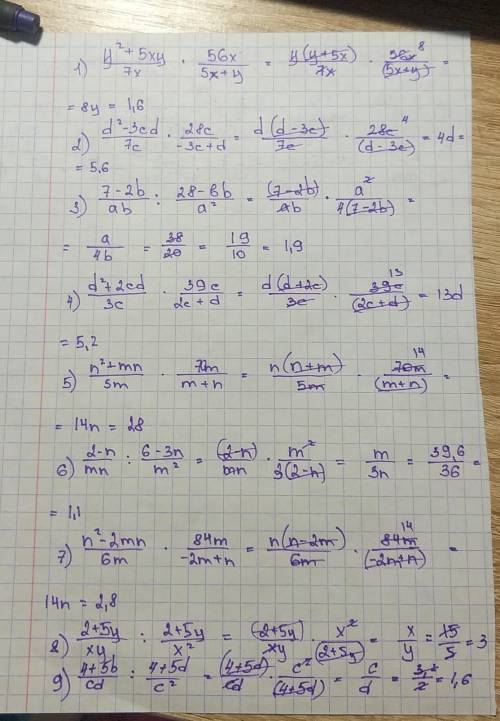 1) (y² + 5xy)/(7x) · (56x)/(5x+y) = (y(y+5x))/(7x) · (56x 8)/((5x+y)) =
= 8y = 1,6
2) (d²-3cd)/(7c) · (28c)/(-3c+d) = (d(d-3c))/(7c) · (28c 4)/((d-3c)) = 4d =
= 5,6
3) (7-2b)/(ab) : (28-8b)/(a²) = ((7-2b))/(ab) · (a²)/(4(7-2b)) =
= a/(4b) = 38/20 = 19/10 = 1,9
4) (d²+2cd)/(3c) · (39c)/(2c+d) = (d(d+2c))/(3c) · (39c 13)/((2c+d)) = 13d
= 5,2
5) (n²+mn)/(5m) · (70m)/(m+n) = (n(n+m))/(5m) · (70m 14)/((m+n)) =
= 14n = 28
6) (2-n)/(mn) : (6-3n)/(m²) = ((2-n))/(mn) · (m²)/(3(2-n)) = m/(3n) = 39,6/36 =
= 1,1
7) (n²-2mn)/(6m) · (84m)/(-2m+n) = (n(n-2m))/(6m) · (84m 14)/((-2m+n)) =
14n = 2,8
8) (2+5y)/(xy) : (2+5y)/(x²) = ((2+5y))/(xy) · (x²)/((2+5y)) = x/y = 15/5 = 3
9) (4+5b)/(cd) : (4+5d)/(c²) = ((4+5d))/(cd) · (c²)/((4+5d)) = c/d = 3,2/2 = 1,6